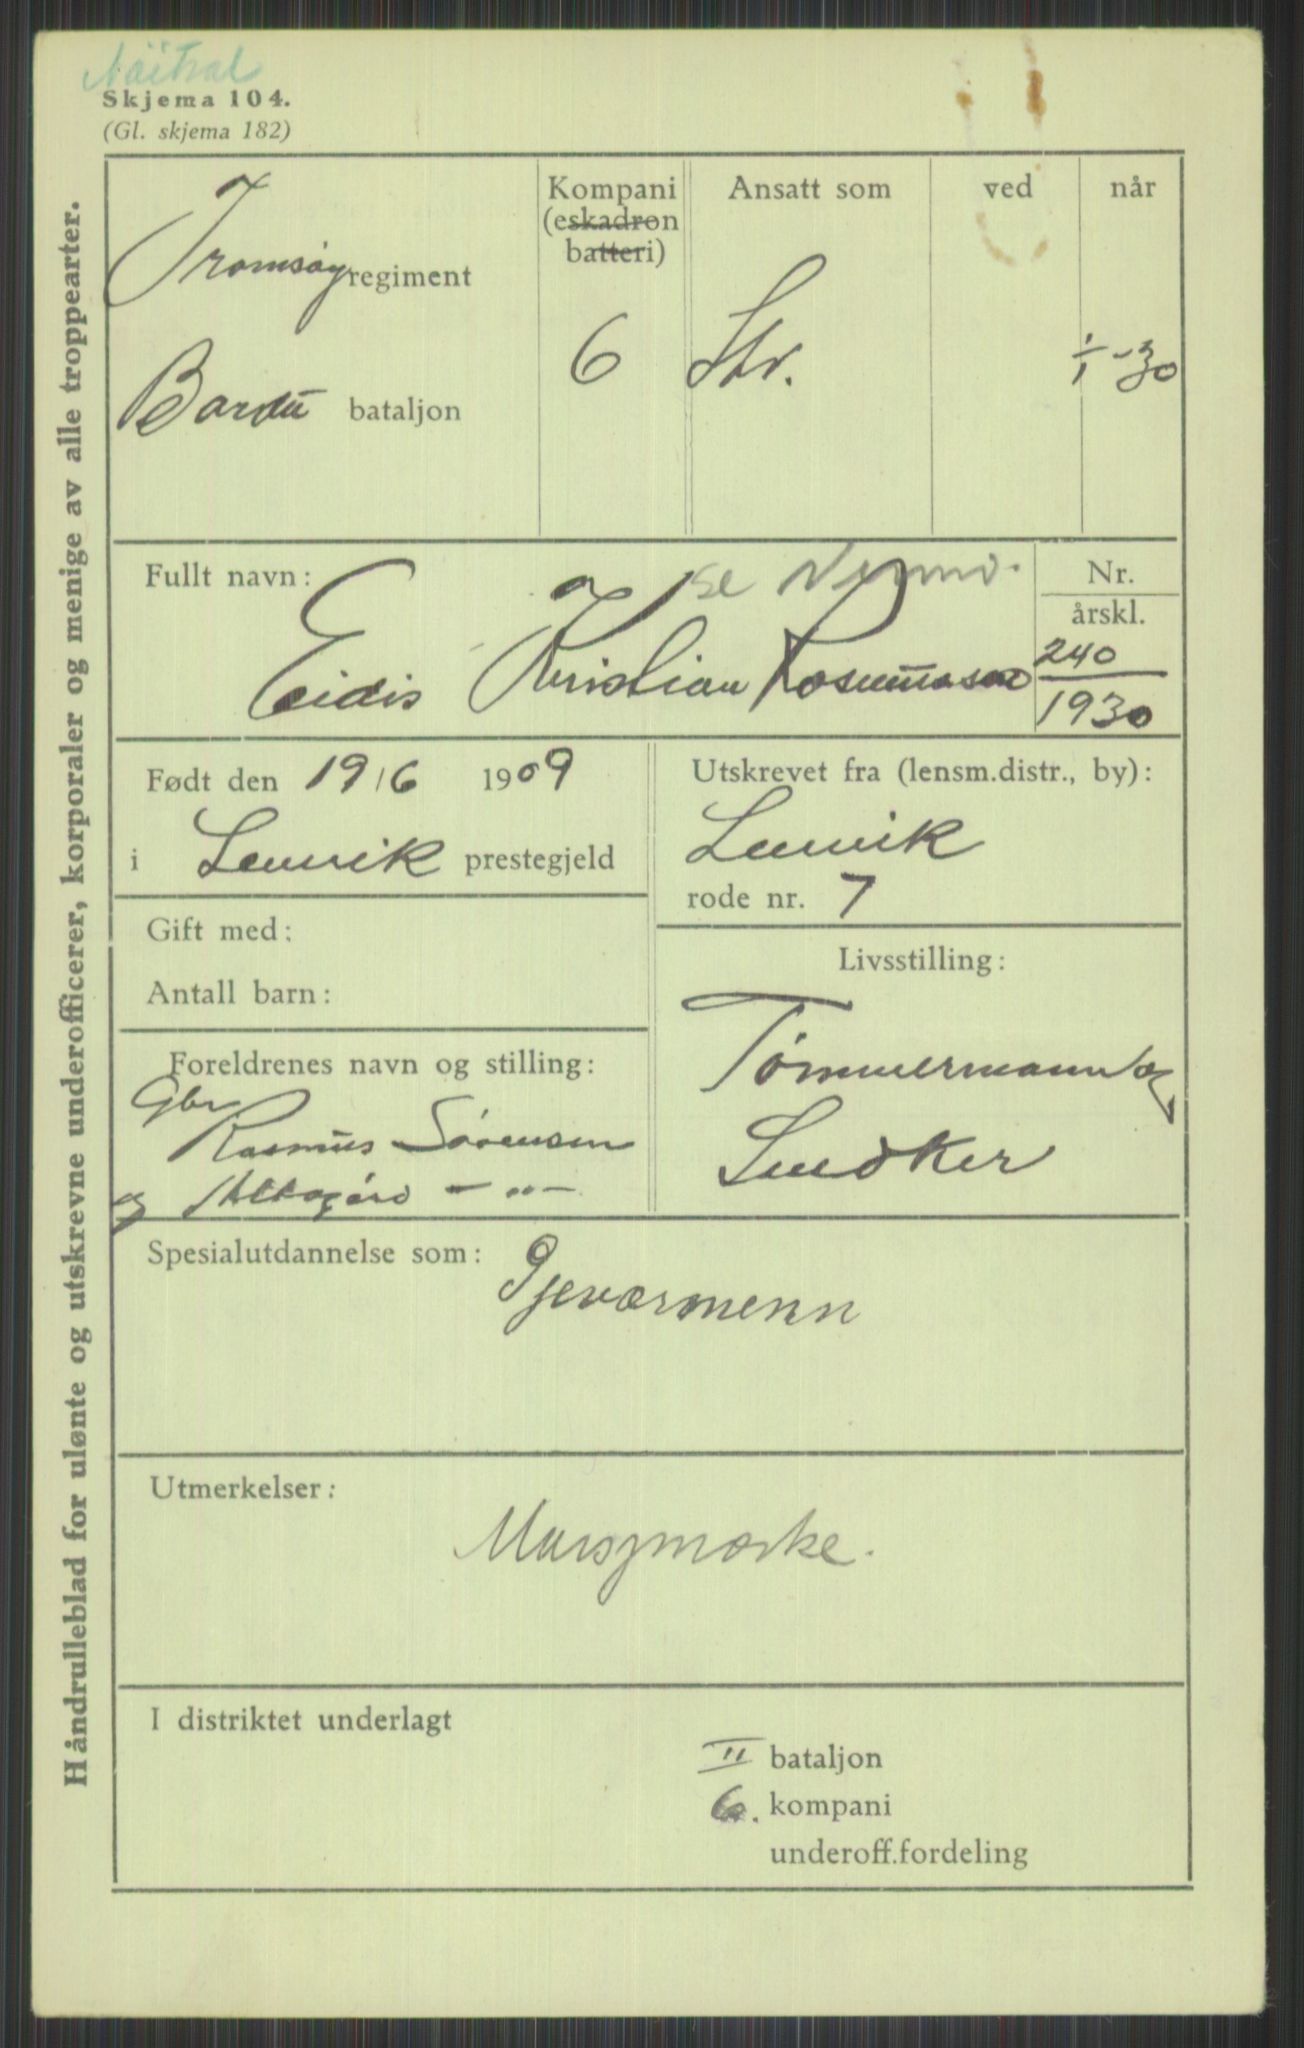 Nøitral
Skjema 104.
(Gl. skjema 182)
Håndrulleblad for ulønte og utskrevne underofficerer, korporaler og menige av alle troppearter.
Kompani Ansatt som ved når
(eskadron
batteri)
Tromsøy regiment
6 Str. 1/1-30
Bardu bataljon
Fullt navn: se
Nr.
årskl.
Eidis Kristian Rasmussen 240
1930
Født den 19/6 1909
i Lenvik prestegjeld
Utskrevet fra (lensm.distr., by):
Lenvik
rode nr. 7
Gift med:
Antall barn:
Livsstilling:
Tømmermann og
Snekker
Foreldrenes navn og stilling:
Gbr
Rasmus Sørensen
og — " —
Spesialutdannelse som: Gjeværmenn
Utmerkelser:
Marsjmærke.
I distriktet underlagt
II bataljon
6. kompani
underoff.fordeling